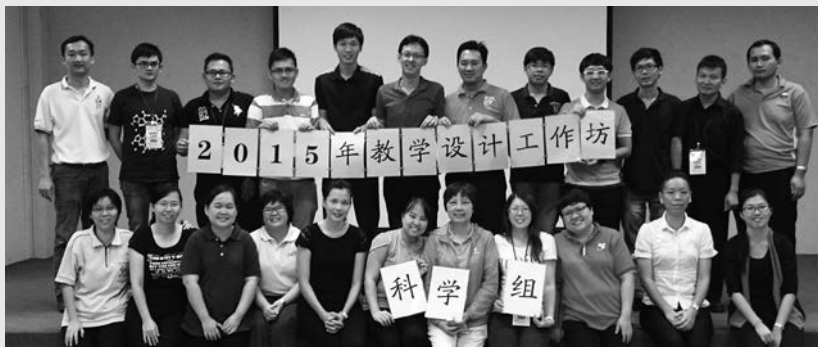 2015年教学设计工作坊
科学组